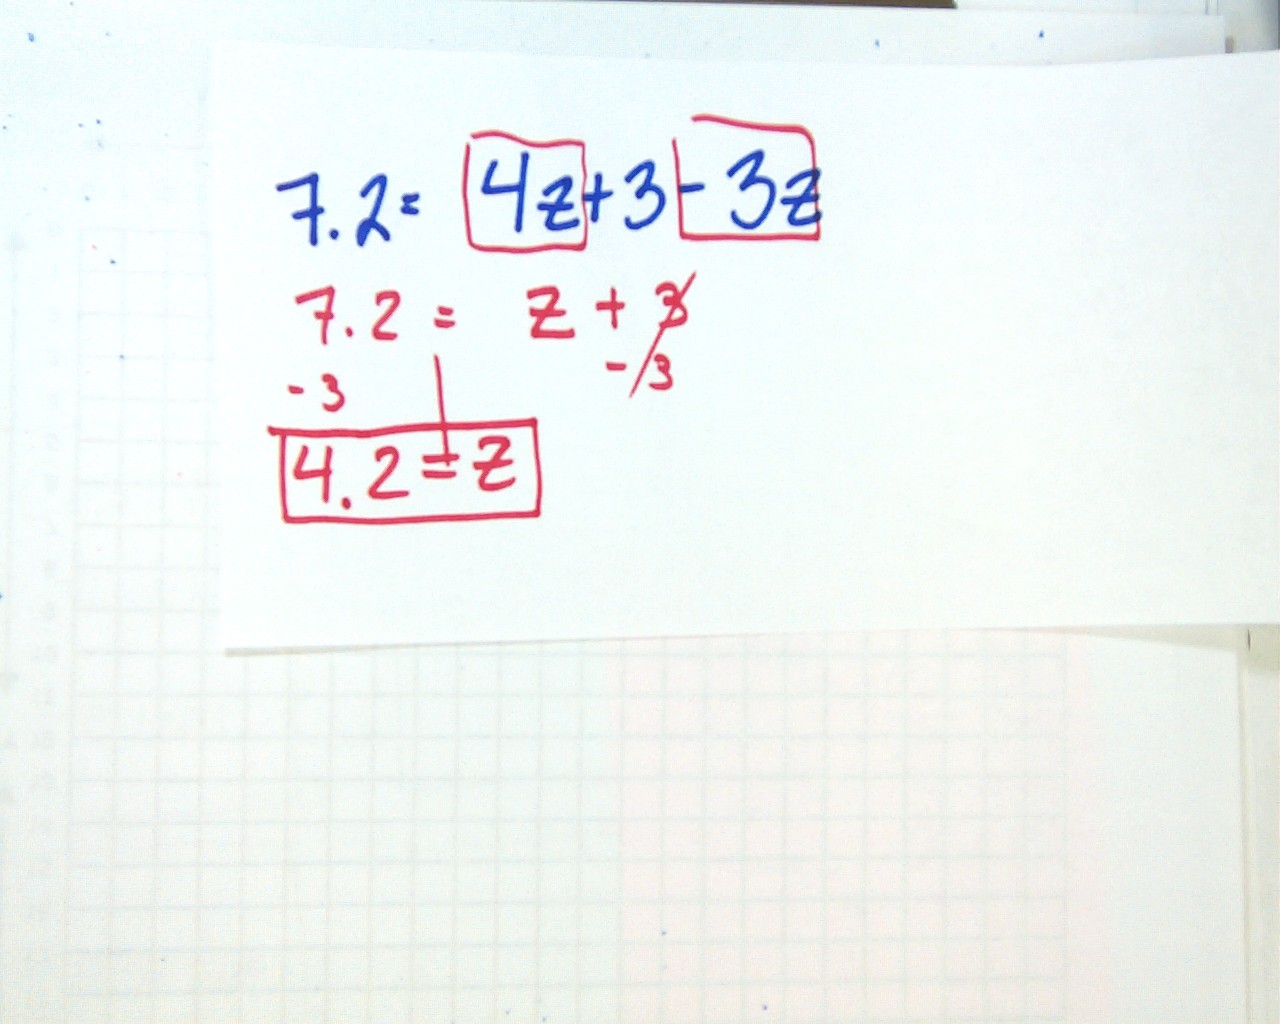 7.2= 4z+3-3z
7.2 = z + 3
-3 -3
4.2=z